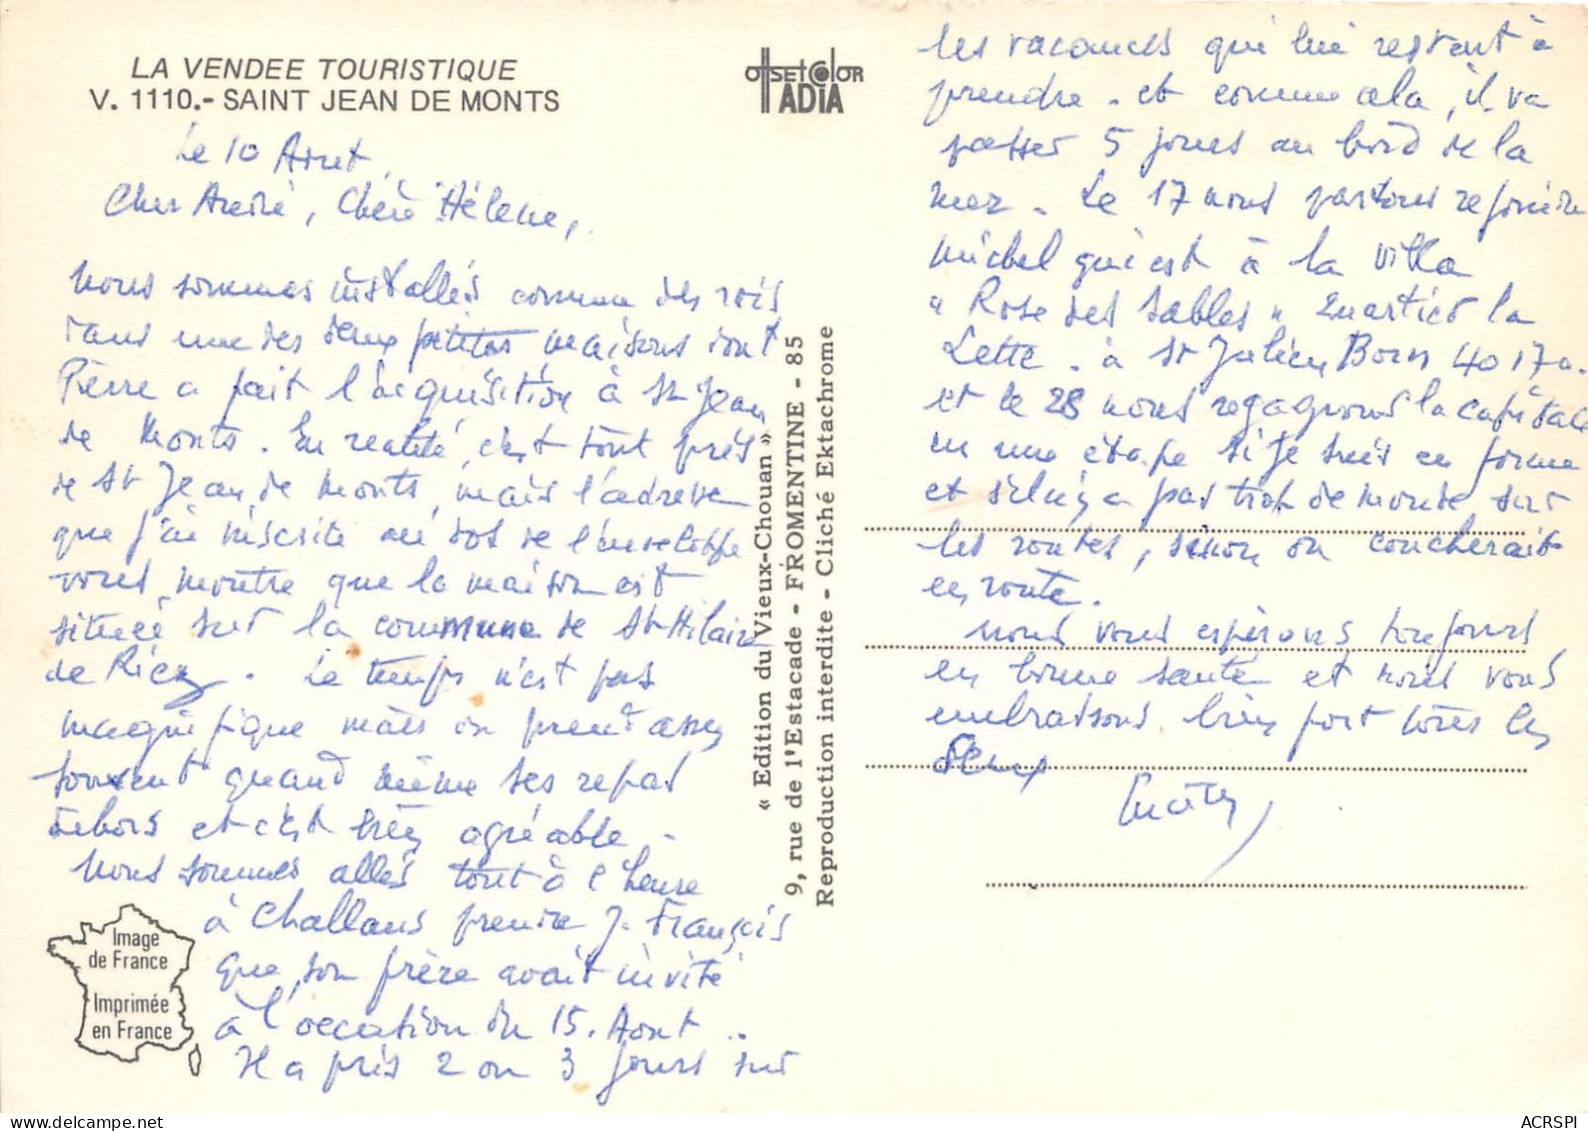 LA VENDEE TOURISTIQUE
V. 1110.- SAINT JEAN DE MONTS
OFFSET COLOR
ADIA
Le 10 Aout,
Cher André, Chère Hélène,
Nous sommes installés comme des rois
dans une des deux petites maisons dont
Pierre a fait l'acquisition à St Jean
de Monts. En réalité, c'est tout près
de St Jean de Monts, mais l'adresse
que j'ai inscrite au dos de l'enveloppe
vous montre que la maison est
située sur la commune de St Hilaire
de Riez. Le temps n'est pas
magnifique mais on prend assez
souvent quand même ses repas
dehors et c'est bien agréable.
Nous sommes allés tout à l'heure
à Challans prendre J. François
que son frère avait invité
à l'occation du 15. Aout..
Il a pris 2 ou 3 jours sur
Image
de France
Imprimée
en France
« Edition du Vieux-Chouan »
9, rue de l'Estacade - FROMENTINE - 85
Reproduction interdite - Cliché Ektachrome
les vacances qui lui restent à
prendre. et comme cela, il va
passer 5 jours au bord de la
mer. Le 17 nous partons rejoindre
Michel qui est à la villa
"Rose des Sables" Quartier la
Lette. à St Julien Born 40170.
et le 28 nous regagnons la capitale
en une étape si je suis en forme
et s'il n'y a pas trop de monde sur
les routes, sinon on coucherait
en route.
Nous vous espérons toujours
en bonne santé et nous vous
embrassons bien fort tous les
deux
ACRSPI